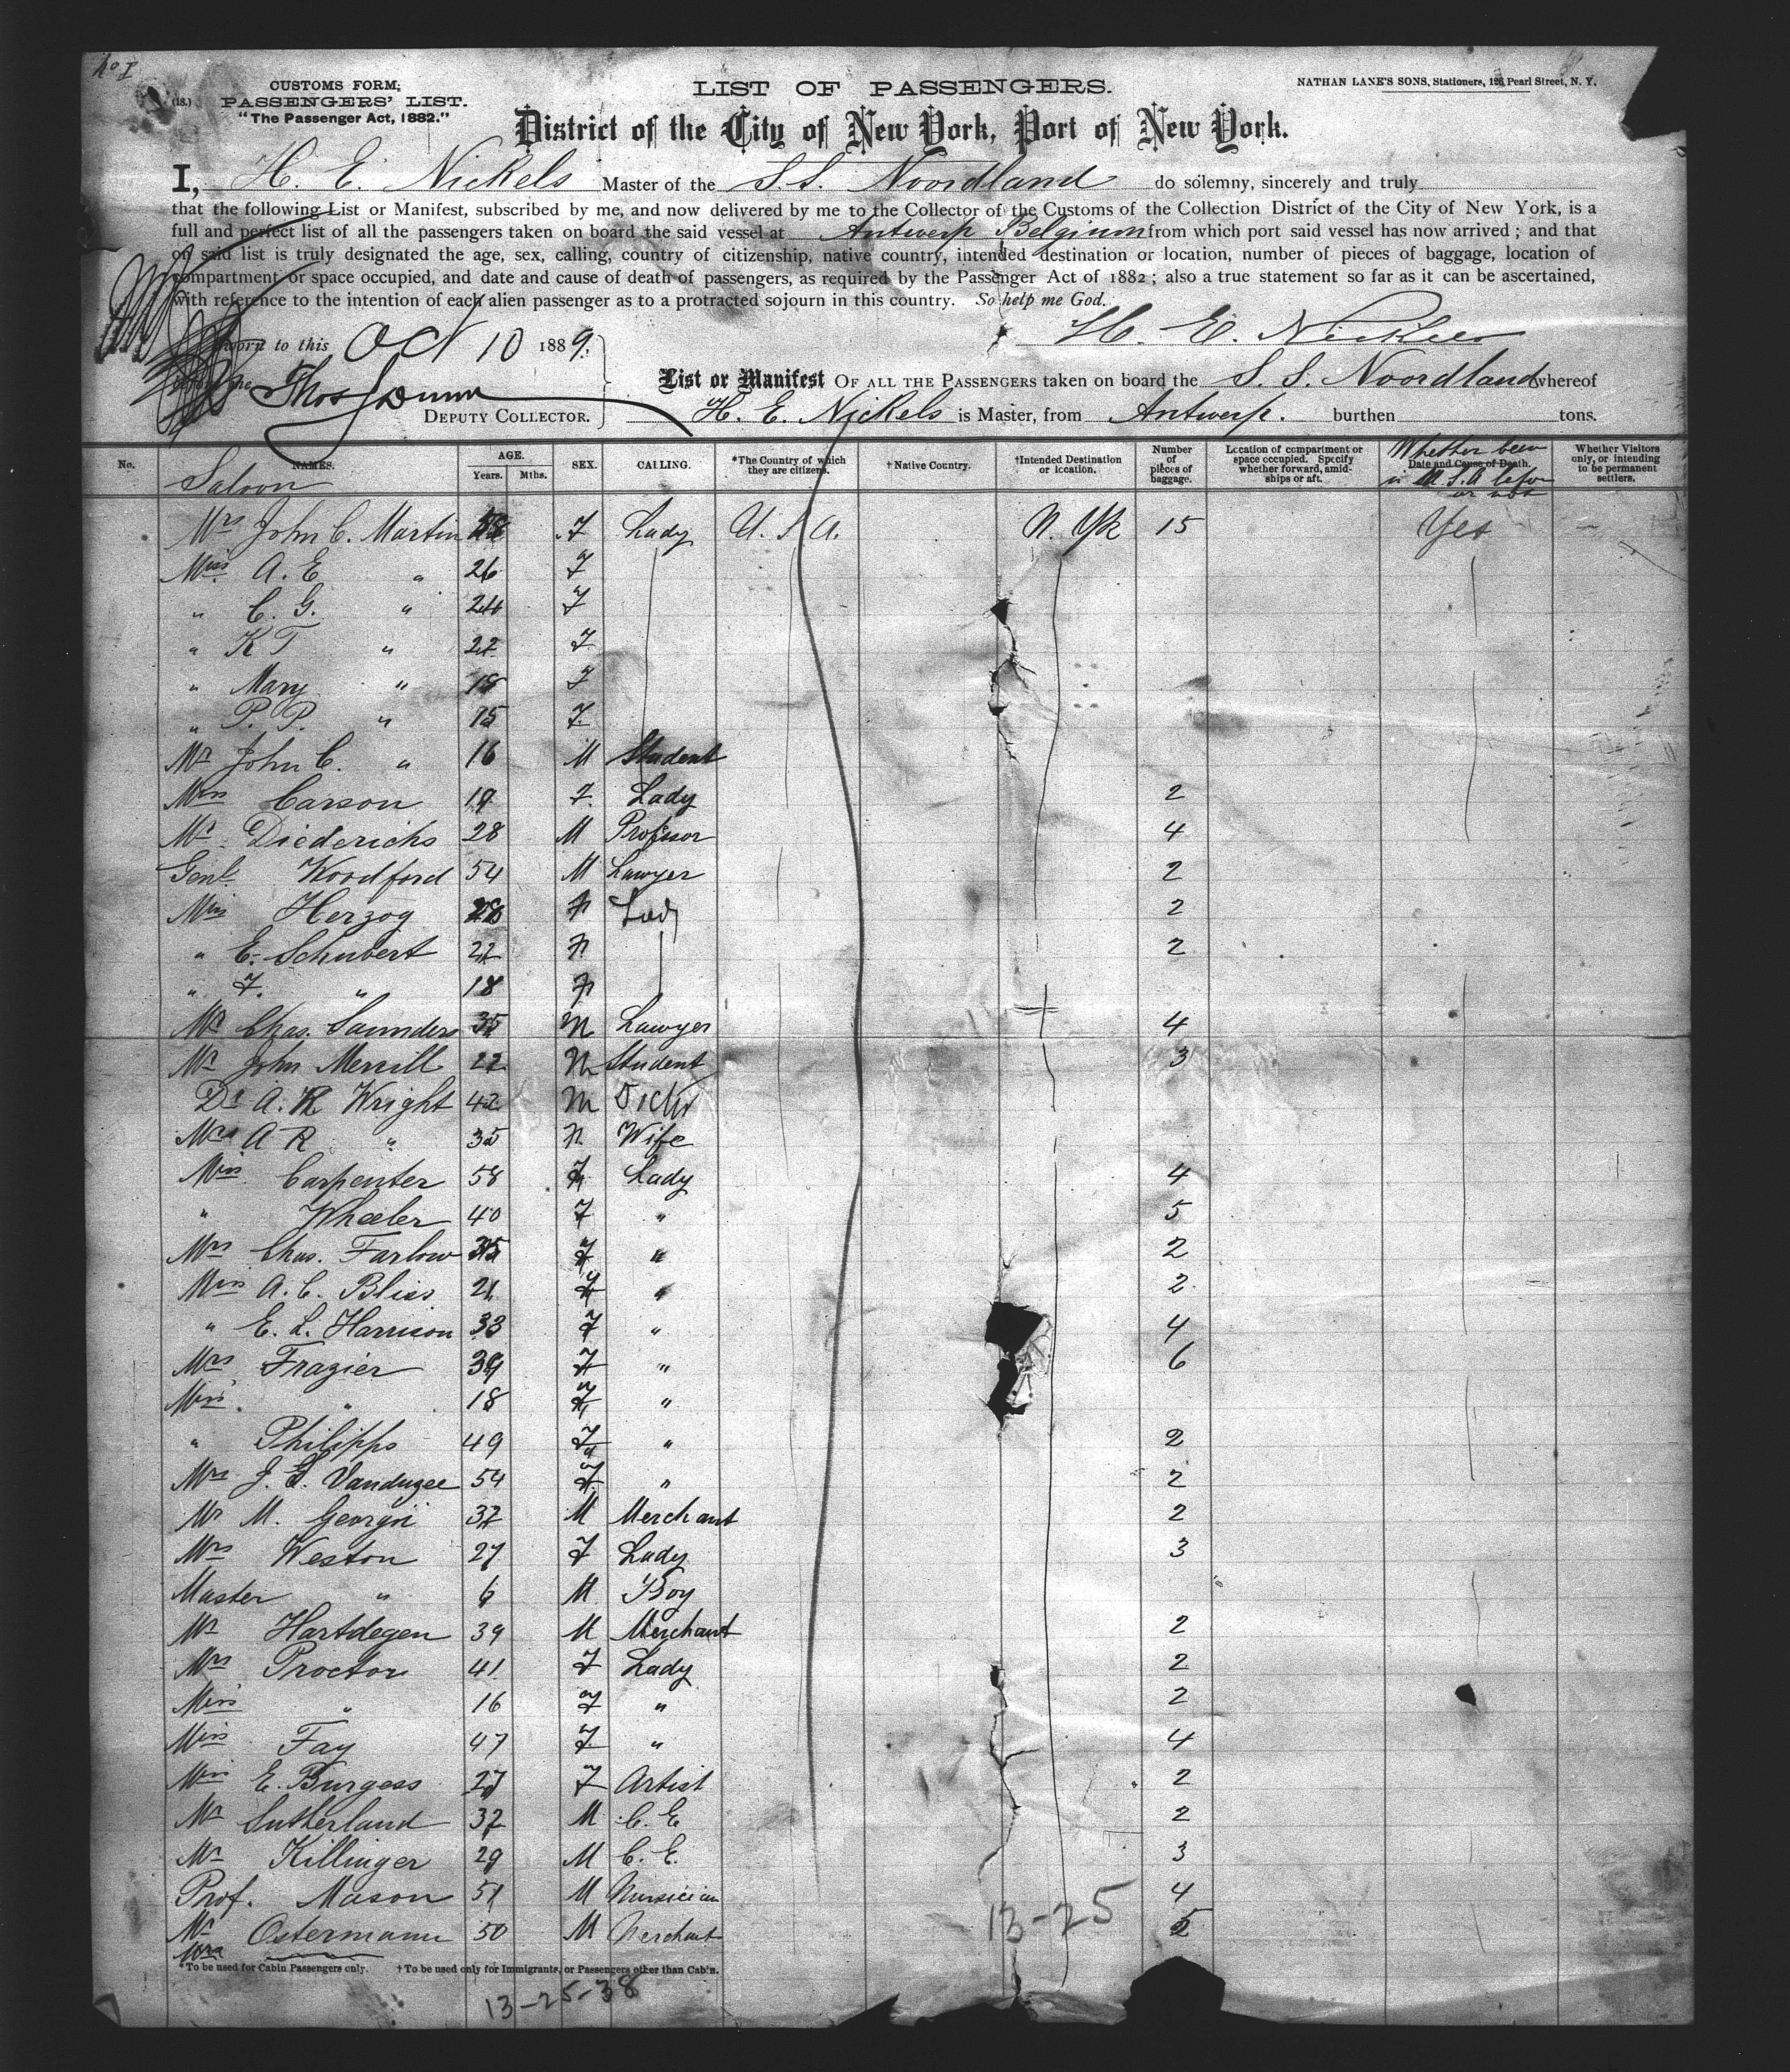 No I
(18.)
CUSTOMS FORM;
PASSENGERS' LIST.
"The Passenger Act, 1882."
LIST OF PASSENGERS.
NATHAN LANE'S SONS, Stationers, 126 Pearl Street, N. Y.
District of the City of New York, Port of New York.
I, H. E. Nickels Master of the S.S. Noordland do solemny, sincerely and truly
that the following List or Manifest, subscribed by me, and now delivered by me to the Collector of the Customs of the Collection District of the City of New York, is a
full and perfect list of all the passengers taken on board the said vessel at Antwerp Belgium from which port said vessel has now arrived; and that
on said list is truly designated the age, sex, calling, country of citizenship, native country, intended destination or location, number of pieces of baggage, location of
compartment or space occupied, and date and cause of death of passengers, as required by the Passenger Act of 1882; also a true statement so far as it can be ascertained,
with reference to the intention of each alien passenger as to a protracted sojourn in this country. So help me God.
H. E. Nickels
Sworn to this Oct 10 1889.
before me Thos J Dunn
DEPUTY COLLECTOR.
List or Manifest OF ALL THE PASSENGERS taken on board the S. S. Noordland whereof
H. E. Nickels is Master, from Antwerp. burthen tons.
No. NAMES. AGE. Years. Mths. SEX. CALLING. *The Country of which they are citizens. †Native Country. †Intended Destination or location. Number of pieces of baggage. Location of compartment or space occupied. Specify whether forward, amidships or aft. Date and Cause of Death. Whether Visitors only, or intending to be permanent settlers.
Saloon Whether been in U.S.A before or not
Mrs John C. Martin F Lady U.S.A. N. Yk 15 Yes
Miss A. E. " 26 F
" C. G. " 24 F
" K T " 22 F
" Mary " 18 F
" P. P. " 15 F
Mr John C. " 16 M Student
Miss Carson 19 F Lady 2
Mr Diederichs 28 M Professor 4
Genl. Woodford 54 M Lawyer 2
Miss Herzog 28 F Lady 2
" E. Schubert 22 F 2
" F. " 18 F
Mr Chas. Saunders 35 M Lawyer 4
Mr John Merrill 22 M Student 3
Dr A. R Wright 42 M Doctor
Mrs A R " 35 F Wife
Miss Carpenter 58 F Lady 4
" Wheeler 40 F " 5
Mrs Chas. Farlow 35 F " 2
Miss A. C. Bliss 21 F " 2
" E. L. Harrison 33 F " 4
Mrs Frazier 39 F " 6
Miss " 18 F "
" Philipps 49 F " 2
Mrs J. S. Vanduzee 54 F " 2
Mr M. Georgii 32 M Merchant 2
Mrs Weston 27 F Lady 3
Master " 6 M Boy
Mr Hartdegen 39 M Merchant 2
Mrs Proctor 41 F Lady 2
Miss " 16 F " 2
Miss Fay 47 F " 4
Miss E. Burgess 27 F Artist 2
Mr Sutherland 32 M C. E 2
Mr Killinger 29 M C. E. 3
Prof. Mason 51 M Musician 4
Mr Ostermann 50 M Merchant 2
Mrs
13-25
*To be used for Cabin Passengers only. †To be used only for Immigrants, or Passengers other than Cabin.
13-25-38